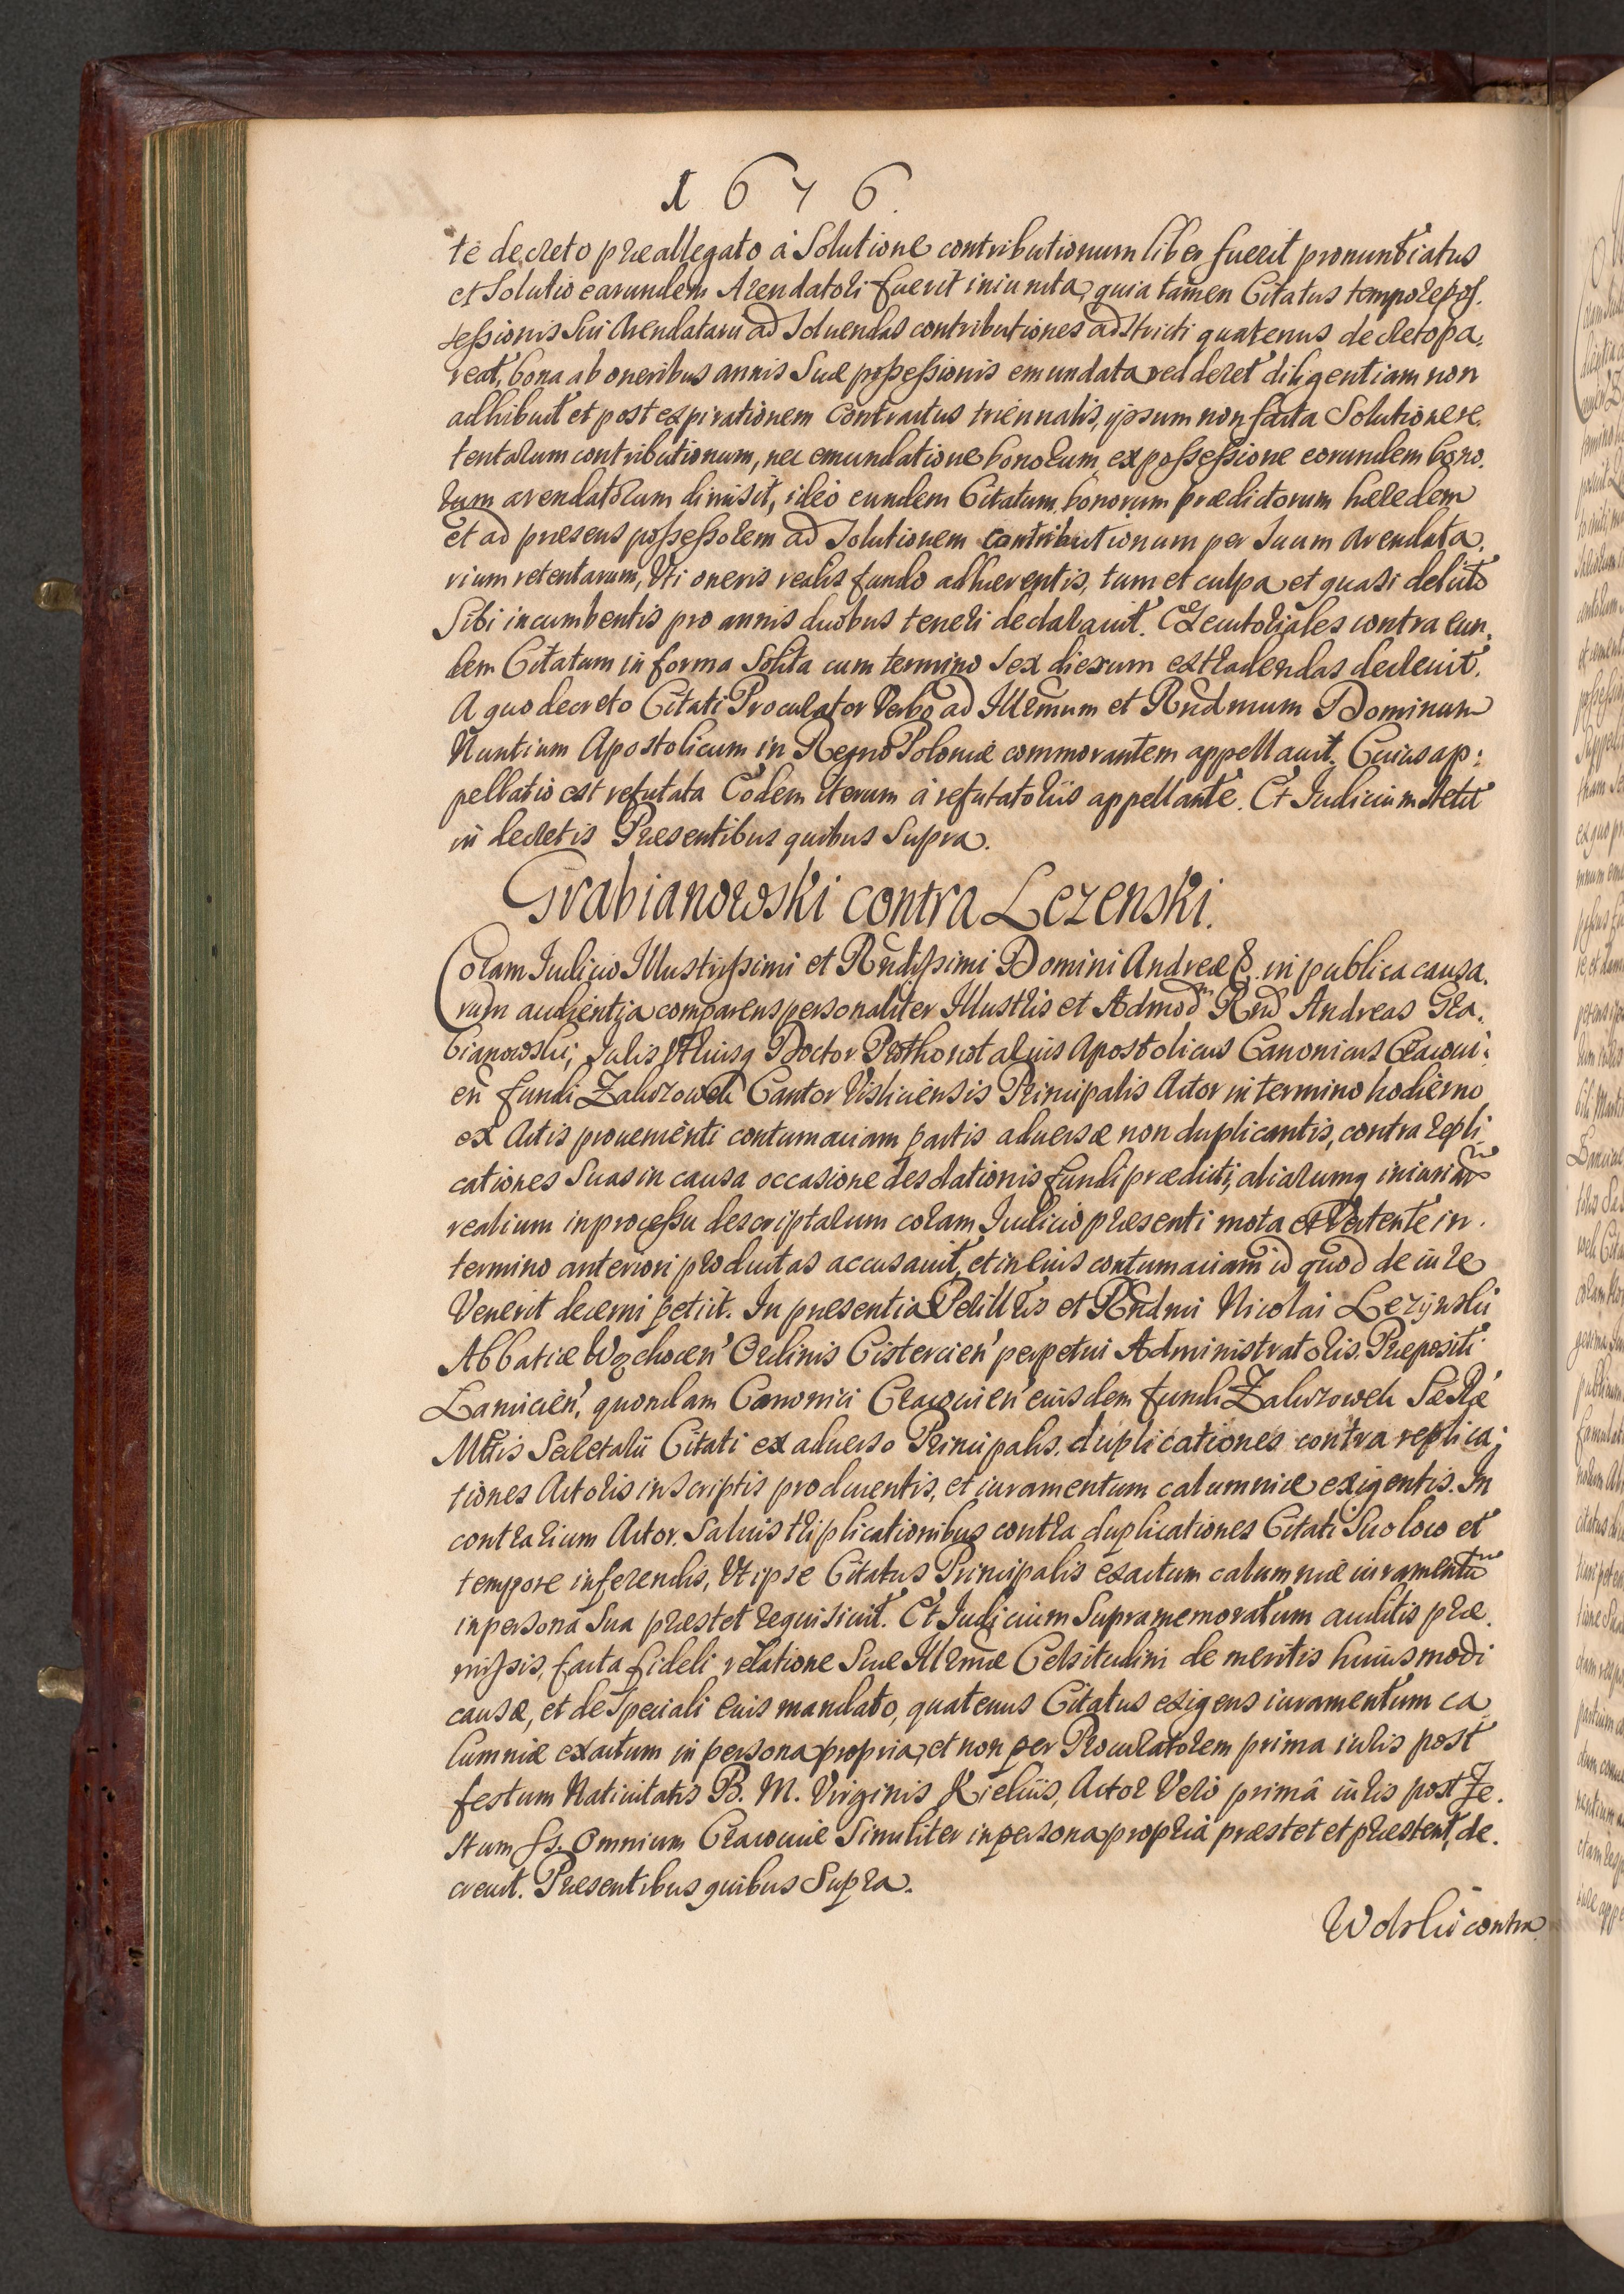 1676.
te decreto præallegato à Solutione contributionum liber fuerit pronuntiatus
et Solutio earundem Arendatori fuerit iniuncta, quia tamen Citatus tempore pos.
sessionis Sui Arendatarii ad Soluendas contributiones adstricti quatenus decreto pa.
reat, bona ab oneribus annis Suæ possessionis emundata redderet diligentiam non
adhibuit et post expirationem Contractus triennalis, ipsum non facta Solutione re.
tentarum contributionum, nec emundatione bonorum ex possessione eorundem bono.
rum arendatorum dimisit, ideo eundem Citatum bonorum prædictorum hæredem
et ad præsens possessorem ad Solutionem contributionum per Suum Arendata.
rium retentarum, Vti oneris realis fundo adhærentis, tum et culpa et quasi delicto
Sibi incumbentis pro annis duobus teneri declarauit. Executoriales contra eun.
dem Citatum in forma Solita cum termino Sex dierum extradendas decreuit.
A quo decreto Citati Procurator Verbo ad Illrmum et Rndmum Dominum
Nuntium Apostolicum in Regno Poloniæ commorantem appellauit. Cuius ap:
pellatio est refutata Eodem iterum à refutatoriis appellante. Et Iudicium stetit
in decretis Præsentibus quibus Supra.
Grabianowski contra Lezenski.
Coram Iudicio Illustrissimi et Rndissimi Domini Andreæ &. in publica causa.
rum audientia comparens personaliter Illustris et Admod͂m Rnd͂ Andreas Gra.
bianowski, Iuris Vtriusq Doctor Prothonotarius Apostolicus Canonicus Cracoui:
en̄ fundi Zalurzowek Cantor Visliciensis Principalis Actor in termino hodierno
ex Actis proueniēnti contumaciam partis aduersæ non duplicantis, contra repli.
cationes Suas in causa occasione desolationis fundi prædicti, aliarumq iniuriarū
realium in processu descriptarum coram Iudicio præsenti mota et Vertente in.
termino anteriori productas accusauit, et in eius contumaciam id quod de iure
Venerit decerni petiit. In præsentia Perillris et Rndmi Nicolai Lezynski
Abbatiæ Wąchocen̄ Ordinis Cistercien̄ perpetui Administratoris. Præpositi
Lanicien̄, quondam Canonici Cracouien̄ eiusdem fundi Zalurzowek SæRæ
Mttis Secretarii Citati ex aduerso Principalis. duplicationes contra replica;
tiones Actoris in Scriptis producentis, et iuramentum calumniæ exigentis. In
contrarium Actor. Saluis triplicationibus contra duplicationes Citati Suo loco et
tempore inferendis, Vt ipse Citatus Principalis exactum calumniæ iuramentū
in persona Sua præstet requisiuit. Et Iudicium Supramemoratum auditis præ.
missis, facta fideli relatione Suæ Illrmæ Celsitudini de meritis huiusmodi
causæ, et de Speciali Eius mandato, quatenus Citatus exigens iuramentum ca
lumniæ exactum in persona propria, et non per Procuratorem prima iuris post
festum Natiuitatis B. M. Virginis Kielciis, Actor Verò primâ iuris post Fe.
stum SS. Omnium Cracouiæ Similiter in persona propria præstet et præstent, de.
creuit. Præsentibus quibus Supra.
Wolski contra